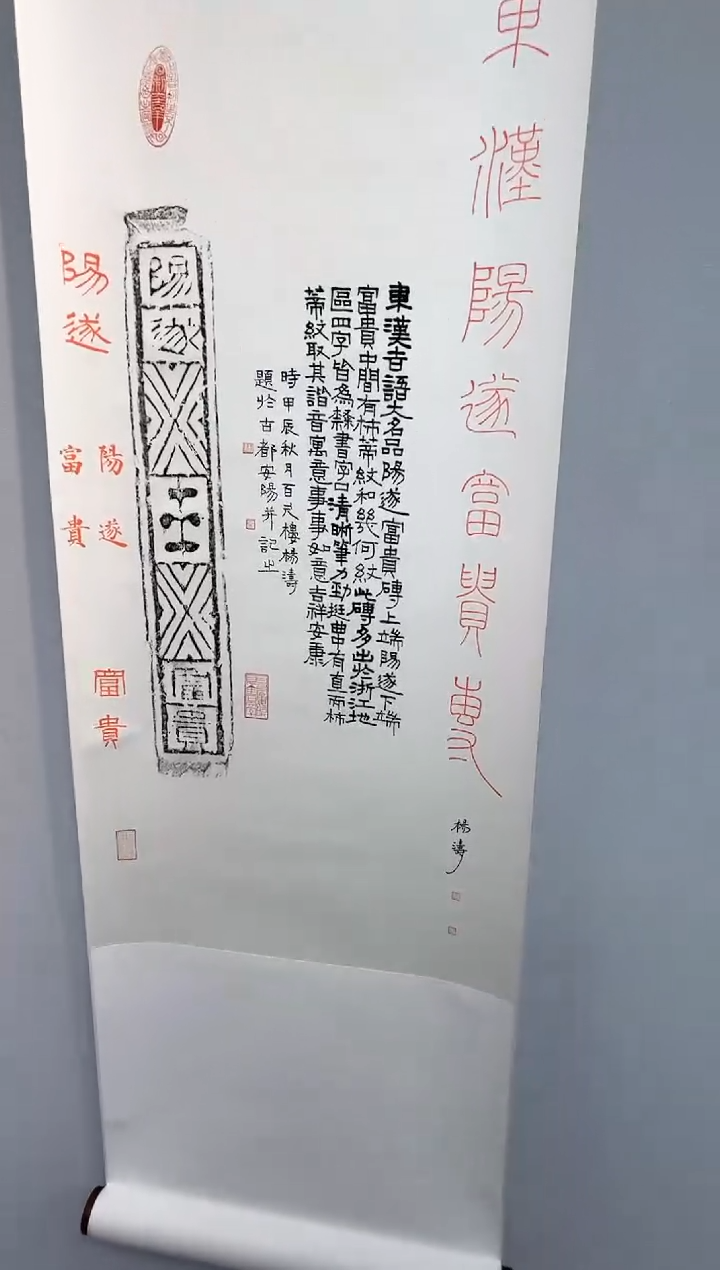 東漢陽遂富貴專
楊濤
東漢吉語大名品陽遂富貴磚上端陽遂下端
富貴中間有柿蒂紋和幾何紋此磚多出於浙江地
區四字皆為隸書字口清晰筆力勁挺曲中有直而柿
蒂紋取其諧音寓意事事如意吉祥安康
時甲辰秋月百尺樓楊濤
題於古都安陽并記之
陽遂
富貴
陽遂
富貴
陽遂
富貴